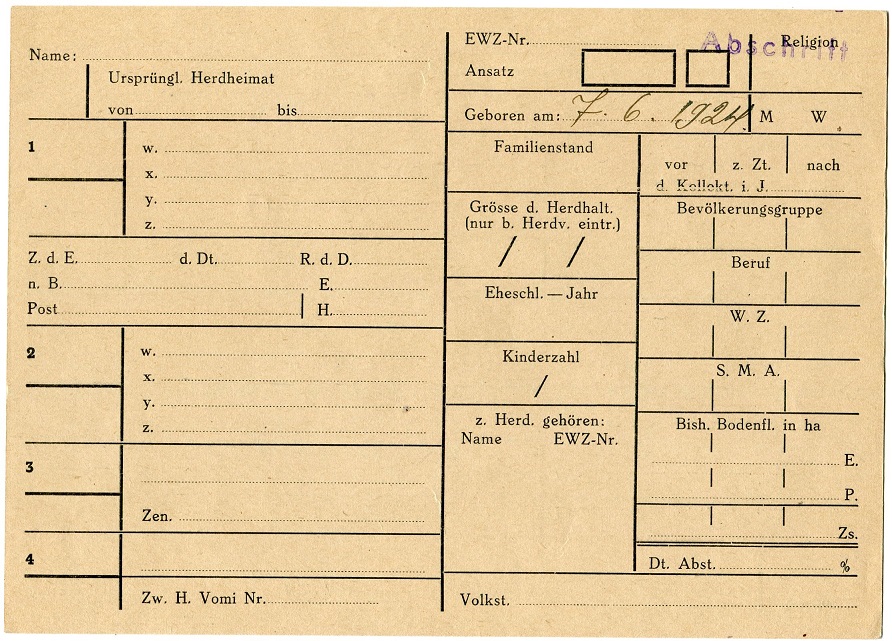 Name:
Ursprüngl. Herdheimat
von bis
1
w.
x.
y.
z.
Z. d. E. d. Dt. R. d. D.
n. B. E.
Post H.
2
w.
x.
y.
z.
3
Zen.
4
Zw. H. Vomi Nr.
EWZ-Nr.
Abschrift
Religion
Ansatz
Geboren am: 7. 6. 1924 M W.
Familienstand
vor z. Zt. nach
d. Kollekt. i. J.
Grösse d. Herdhalt.
(nur b. Herdv. eintr.)
/ /
Bevölkerungsgruppe
Beruf
Eheschl. — Jahr
W. Z.
Kinderzahl
/
S. M. A.
z. Herd. gehören:
Name EWZ-Nr.
Bish. Bodenfl. in ha
E.
P.
Zs.
Dt. Abst. %
Volkst.